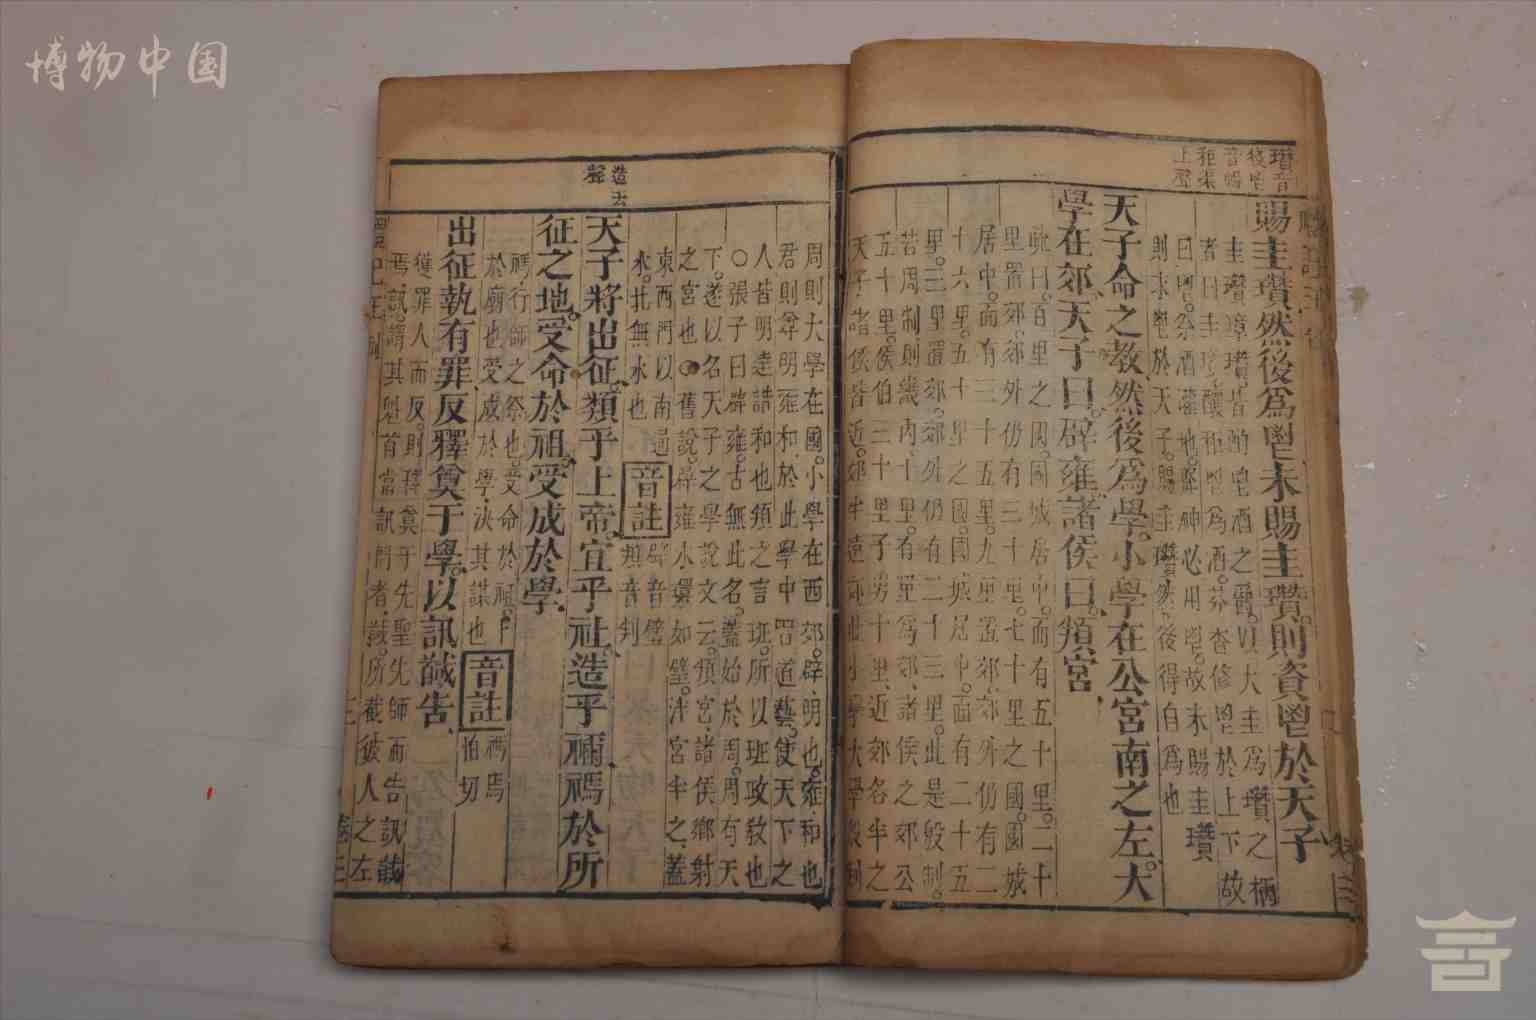 博物中国
瓚音
賜圭瓚然後爲鬯未賜圭瓚則資鬯於天子
圭瓚璋瓚皆酌鬯酒之爵以大圭爲瓚之柄
者曰圭瓚釀秬鬯爲酒芬香條鬯於上下故
曰鬯祭酒灌地降神必用鬯故未賜圭瓚
則求鬯於天子賜圭瓚然後得自爲也
天子命之教然後爲學小學在公宮南之左大
學在郊天子曰辟雍諸侯曰頖宮
百里之國國城居中面有五十里二十
里置郊郊外仍有三十里七十里之國國城
居中面有三十五里九里置郊郊外仍有二
十六里五十里之國國城居中面有二十五
里三里置郊郊外仍有二十三里此是殷制
若周制則畿內千里百里爲郊諸侯之郊公
五十里侯伯三十里子男十里近郊各半之
天子諸侯皆近郊半遠郊此小學大學殷制
造去
聲
周則大學在國小學在西郊辟明也雍和也
君則尊明雍和於此學中習道藝使天下之
人皆明達諧和也頖之言班所以班政教也
○張子曰辟雍古無此名蓋始於周周有天
下遂以名天子之學說文云頖宮諸侯鄉射
之宮也○舊說辟雍水環如璧泮宮半之蓋
東西門以南通
水北無水也
音註
辟音璧
頖音判
天子將出征類乎上帝宜乎社造乎禰禡於所
征之地受命於祖受成於學
禡行師之祭也受命於祖卜
於廟也受成於學決其謀也
音註
禡馬
怕切
出征執有罪反釋奠于學以訊馘告
獲罪人而反則釋奠于先聖先師而告訊馘
焉訊謂其魁首當訊問者馘所截彼人之左